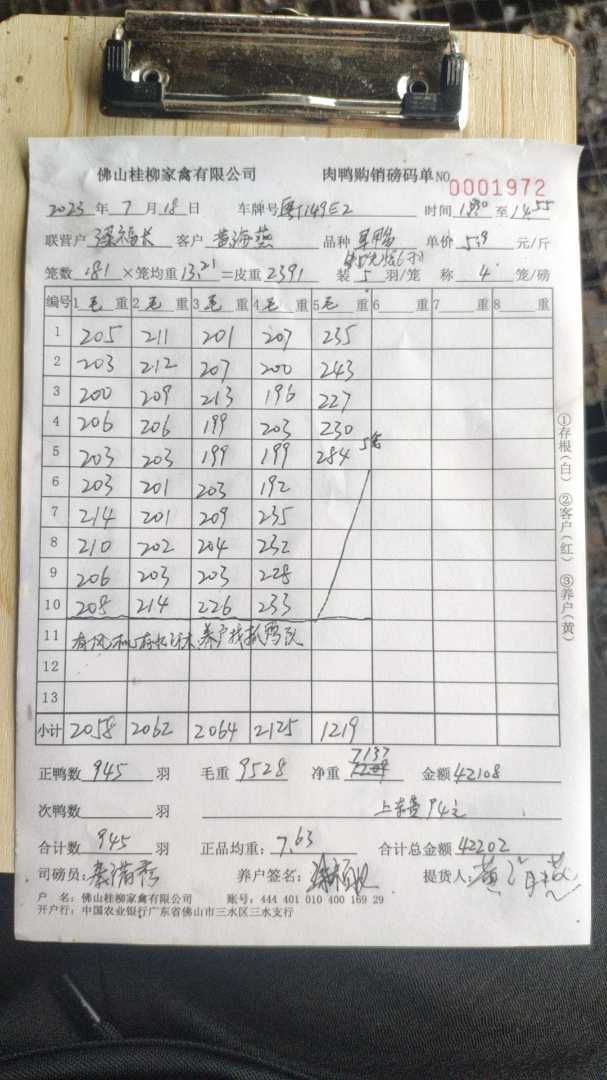 佛山桂柳家禽有限公司 肉鸭购销磅码单 NO 0001972
2023 年 7 月 18 日 车牌号 粤J149E2 时间 1330 至 1455
联营户 梁福长 客户 黄海燕 品种 单价 5.9 元/斤
笼数 181 ×笼均重 13.21 =皮重 2391 装 5 羽/笼 称 4 笼/磅
编号 1 毛 重 2 毛 重 3 毛 重 4 毛 重 5 毛 重 6 重 7 重 8 重
1 205 211 201 207 235
2 203 212 207 200 243
3 200 209 213 196 227
4 206 206 199 203 230
5 203 203 199 199 284 5笼
6 203 201 203 192
7 214 201 209 235
8 210 202 204 232
9 206 203 203 228
10 208 214 226 233
11 有风机 养户找抓鸭队
12
13
小计 2058 2062 2064 2125 1219
正鸭数 945 羽 毛重 9528 净重 7137 金额 42108
次鸭数 羽 上车费 94元
合计数 945 羽 正品均重: 7.63 合计总金额 42202
司磅员: 养户签名: 提货人: 黄海燕
户 名: 佛山桂柳家禽有限公司 账号: 444 401 010 400 169 29
开户行: 中国农业银行广东省佛山市三水区三水支行
①存根(白) ②客户(红) ③养户(黄)